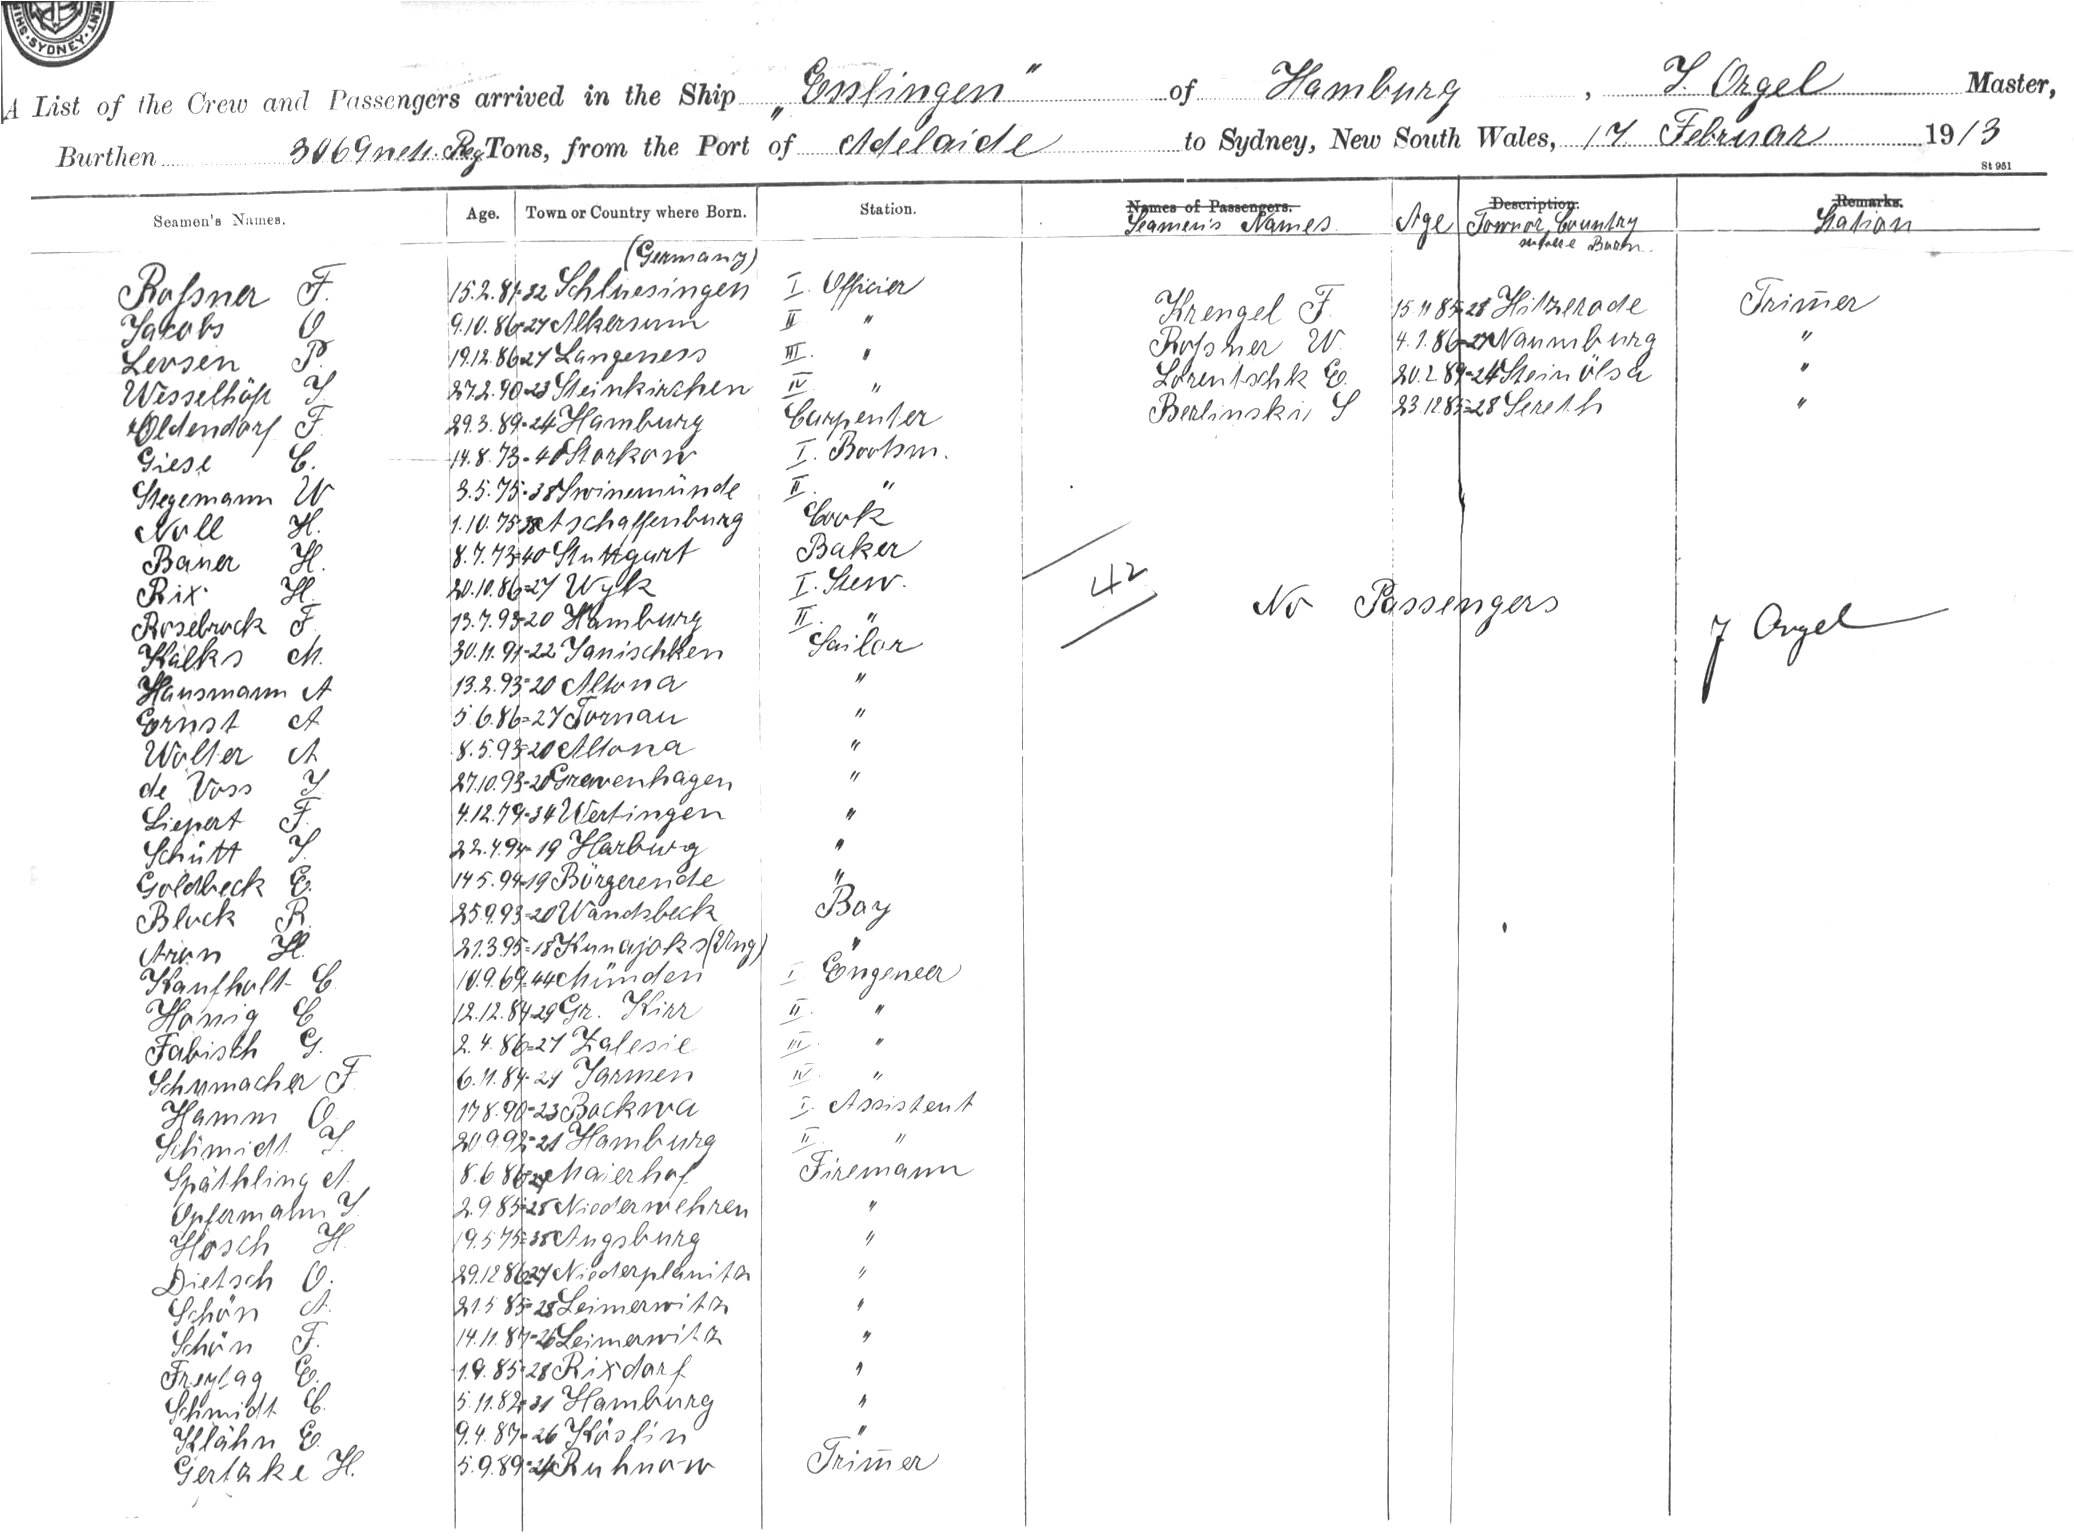 SYDNEY
A List of the Crew and Passengers arrived in the Ship „Esslingen" of Hamburg, J. Orgel Master,
Burthen 3069 nett. Reg Tons, from the Port of Adelaide to Sydney, New South Wales, 17 Februar 1913
St 951
Seamen's Names. Age. Town or Country where Born. Station. Names of Passengers. Description. Remarks.
Seamen's Names Age Town or Country where Born Station
(Germany)
Roßner F. 15.2.81-32 Schluesingen I. Officier
Jacobs O 9.10.86-27 Alkersum II "
Levsen P. 19.12.86-27 Langeness III. "
Wesselhöft J 27.2.90-23 Steinkirchen IV "
Oldendorf F 29.3.89-24 Hamburg Carpenter
Giese C. 14.8.73-40 Storkow I. Bootsm.
Stegemann W 3.5.75-38 Swinemünde II. "
Noll H. 1.10.75-38 Aschaffenburg Cook
Bauer H. 8.7.73-40 Stuttgart Baker
Rix H. 20.10.86-27 Wyk I. Stew.
Rosebrock F 13.7.93-20 Hamburg II. "
Kalks M. 30.11.91-22 Janischken Sailor
Hausmann A 13.2.93-20 Altona "
Ernst A 5.6.86-27 Tornau "
Wolter A 8.5.93-20 Altona "
de Voss J 27.10.93-20 Gravenhagen "
Liepert F. 4.12.79-34 Wertingen "
Schütt J. 22.4.94-19 Harburg "
Goldbeck E. 14.5.94-19 Börgerende "
Block R. 25.9.93-20 Wandsbeck Boy
Aron H. 21.3.95-18 Kunajoks (Ung) "
Kaufholt C 10.9.69-44 Münden I Engeneer
Honig C 12.12.84-29 Gr. Kirr II. "
Fabisch G. 2.4.86-27 Zalesie III "
Schumacher F 6.11.84-29 Jarmen IV "
Hamm O. 17.8.90-23 Bockwa I. Assistent
Schmidt J. 20.9.92-21 Hamburg II "
Späthling A. 8.6.86-27 Maierhof Firemann
Opfermann J. 2.9.85-28 Niederwehren "
Hosch H. 19.5.75-38 Augsburg "
Dietsch O. 29.12.86-27 Niederplanitz "
Schön A. 21.5.85-28 Leimerwitz "
Schön F. 14.11.87-26 Leimerwitz "
Freytag E. 1.9.85-28 Rixdorf "
Schmidt C. 5.11.82-31 Hamburg "
Klähn E. 9.4.87-26 Köslin "
Gertzke H. 5.9.89-24 Ruhnow Trim̄er
Krengel F. 15.11.85-28 Hitzerode Trim̄er
Roßner W. 4.1.86-27 Naumburg "
Lorentschk E. 20.2.89-24 Steinölsa "
Berlinski S 23.12.85-28 Sereth "
42
No Passengers
J Orgel